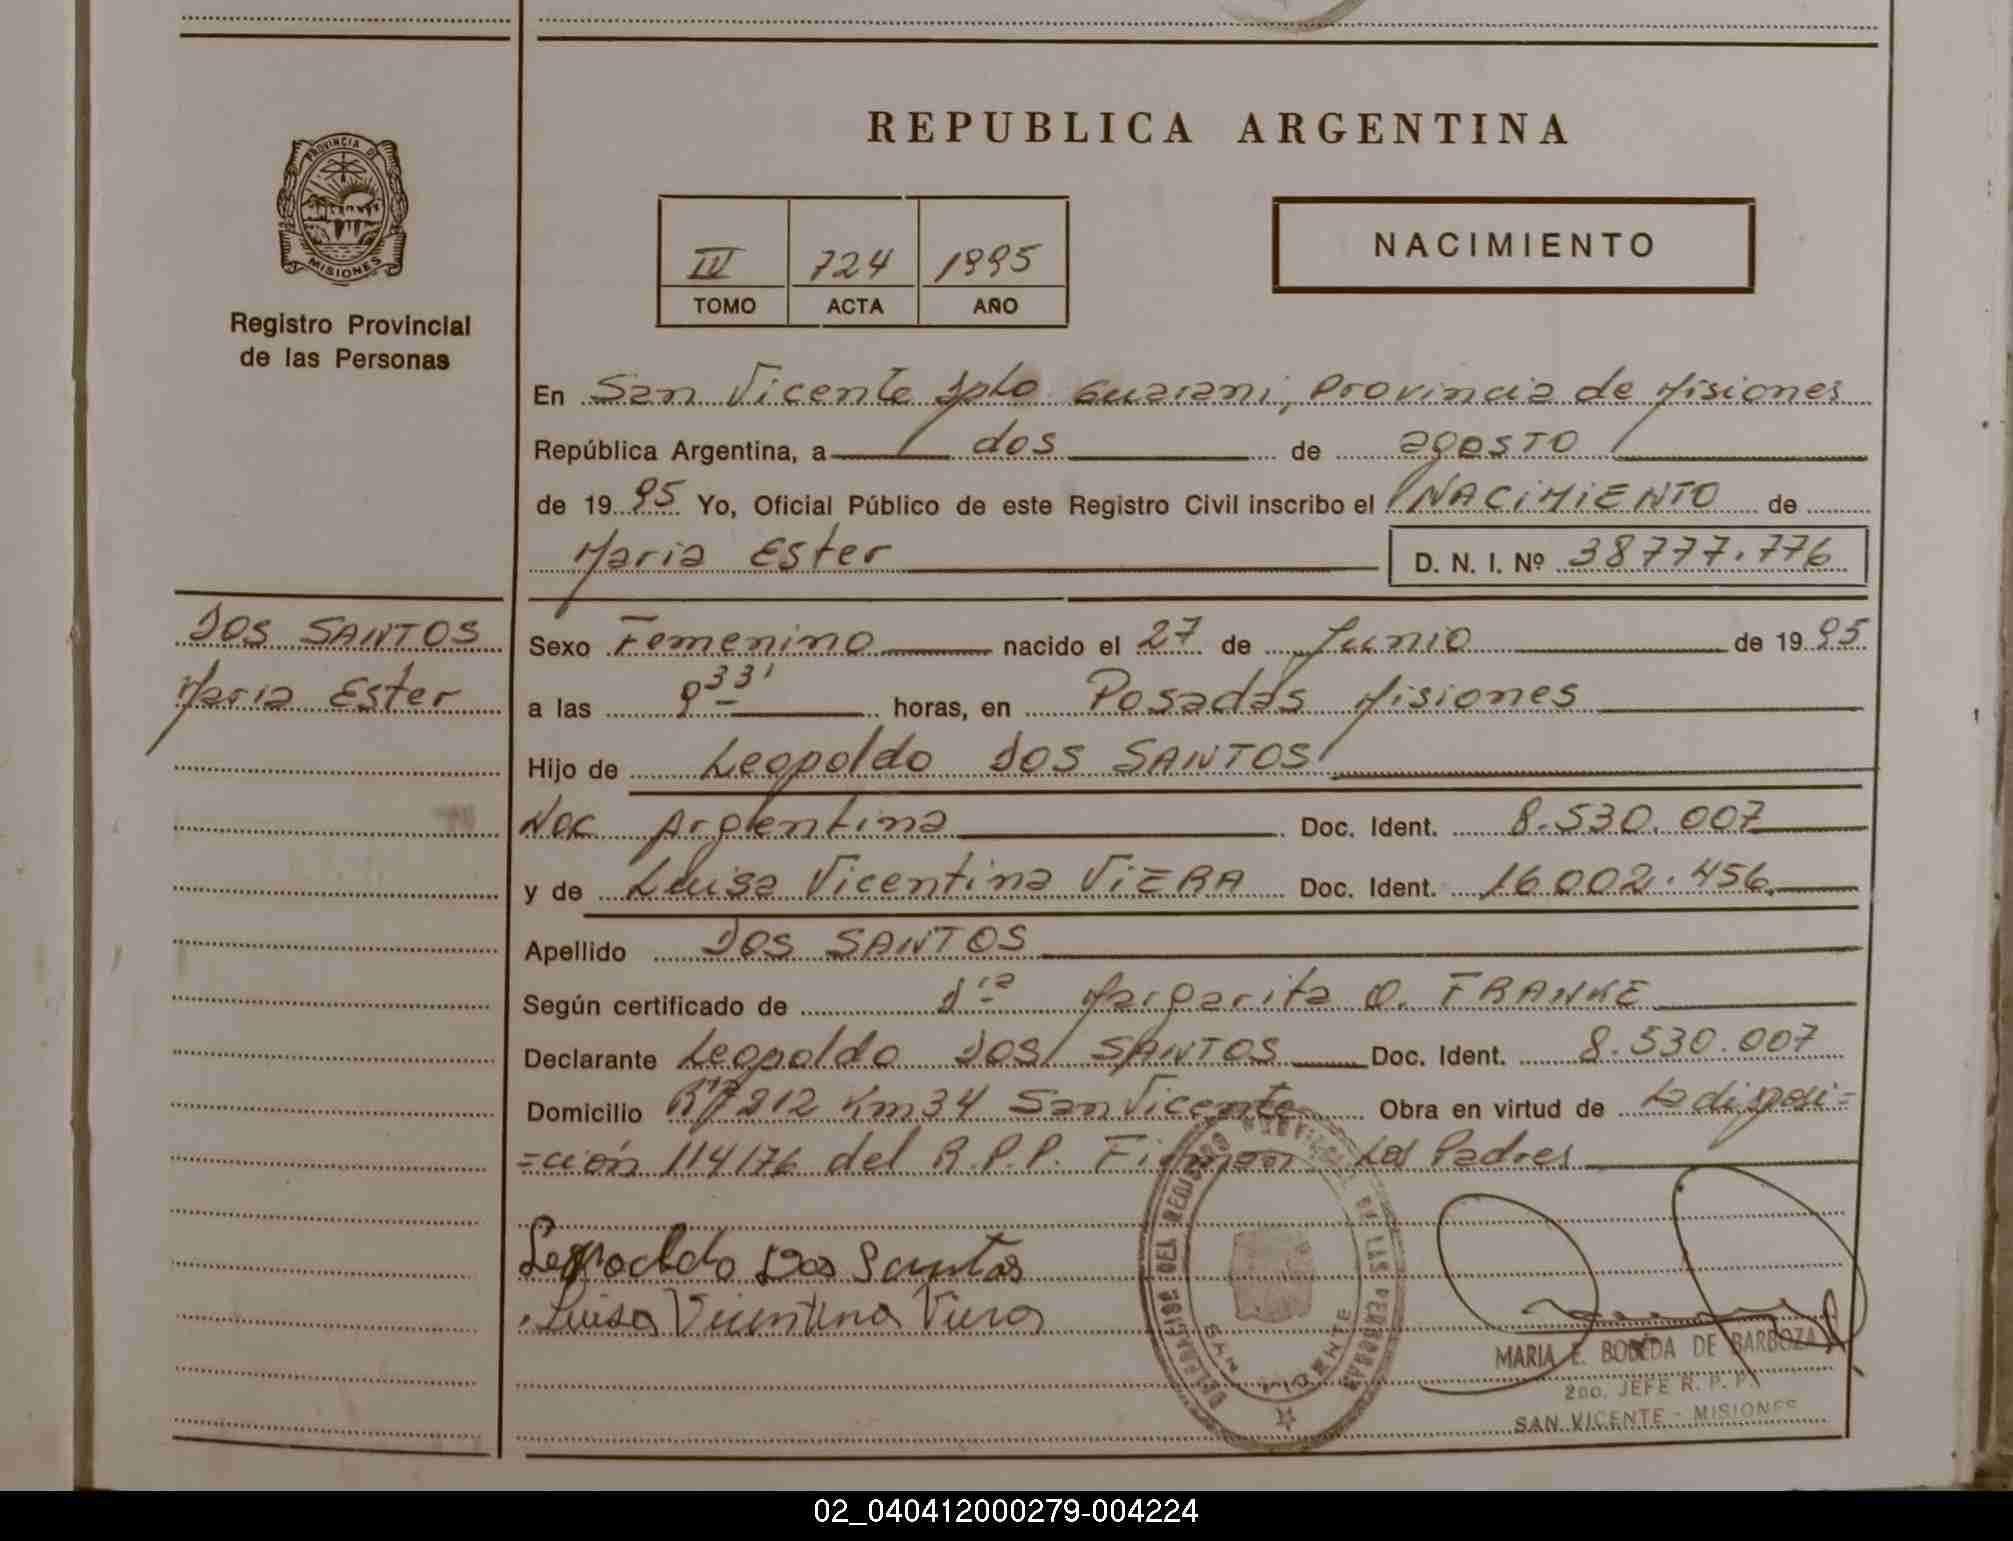 REPUBLICA ARGENTINA
PROVINCIA DE
MISIONES
Registro Provincial
de las Personas
IV 724 1995
TOMO ACTA AÑO
NACIMIENTO
En San Vicente Dpto Guarani, Provincia de Misiones
República Argentina, a dos de agosto
de 19 95 Yo, Oficial Público de este Registro Civil inscribo el NACIMIENTO de
Maria Ester D. N. I. Nº 38777.776
DOS SANTOS
Maria Ester
Sexo Femenino nacido el 27 de Junio de 19 95
a las 9 33' horas, en Posadas Misiones
Hijo de Leopoldo DOS SANTOS
Nac Argentina Doc. Ident. 8.530.007
y de Luisa Vicentina VIERA Doc. Ident. 16002.456
Apellido DOS SANTOS
Según certificado de Dra Margarita O. FRANKE
Declarante Leopoldo DOS SANTOS Doc. Ident. 8.530.007
Domicilio 212 Km 34 San Vicente Obra en virtud de La disposi=
=ción 114/76 del R.P.P. Firman Los Padres
Leopoldo Dos Santos
Luisa Vicentina Viera
DEL REGISTRO DE LAS PERSONAS
SAN VICENTE
MARIA E. BOBEDA DE BARBOZA
2do. JEFE R. P. P.
SAN VICENTE - MISIONES
02_040412000279-004224